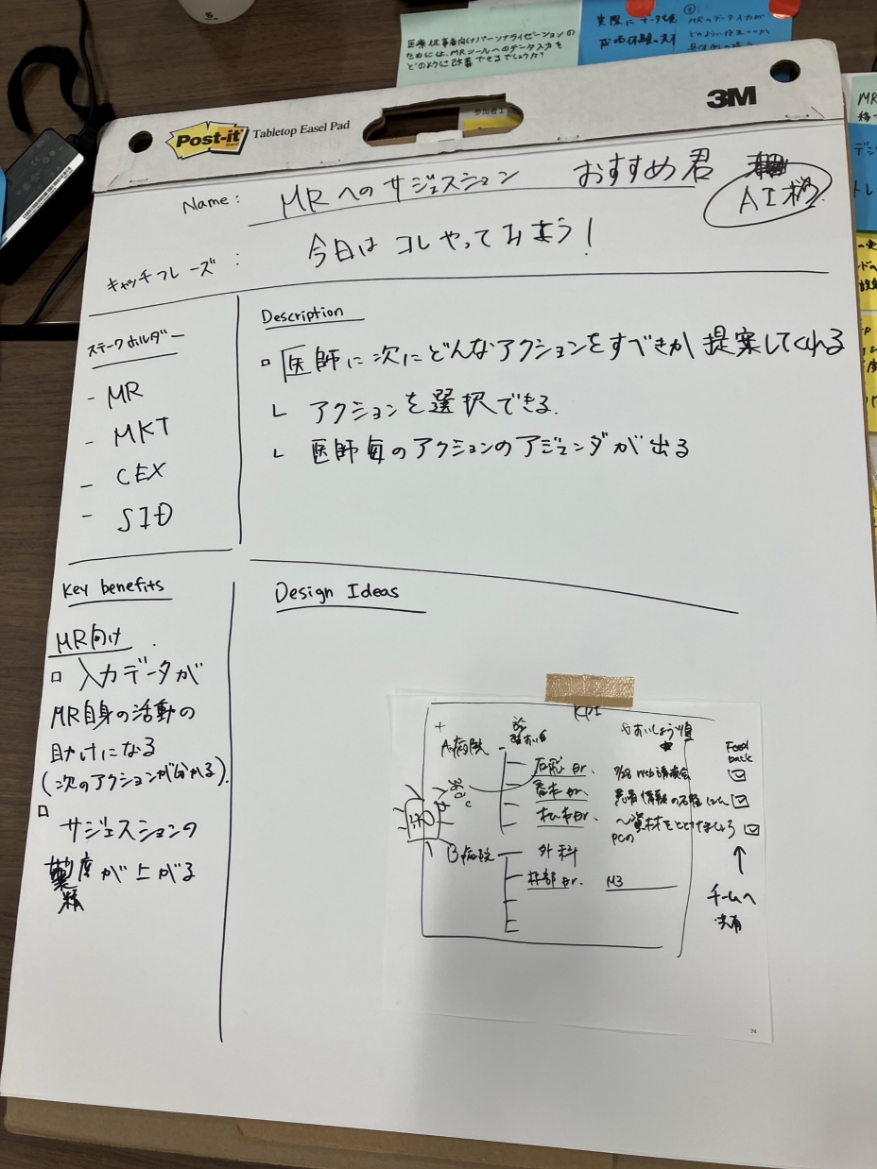 医療従事者向けパーソナライゼーションの
ためには、MRツールへのデータ入力を
どのように改善できるでしょうか?
実際に
MRのデータ入力が
Post-it Tabletop Easel Pad
3M
Name: MRへのサジェスション おすすめ君
AI
キャッチフレーズ: 今日はコレやっておこう!
ステークホルダー
- MR
- MKT
- CEX
- SID
Description
医師に次にどんなアクションをすべきか提案してくれる
アクションを選択できる.
医師毎のアクションのアジェンダが出る
Key benefits
MR向け
入力データが
MR自身の活動の
助けになる
(次のアクションが分かる).
サジェスションの
精度が上がる
Design Ideas
KPI
A病院
Dr.
Web講演会
Feed
back
Dr.
患者情報の
松本Dr.
資材をとどけましょう
PCの
B病院
外科
Dr.
M3
チームへ
共有